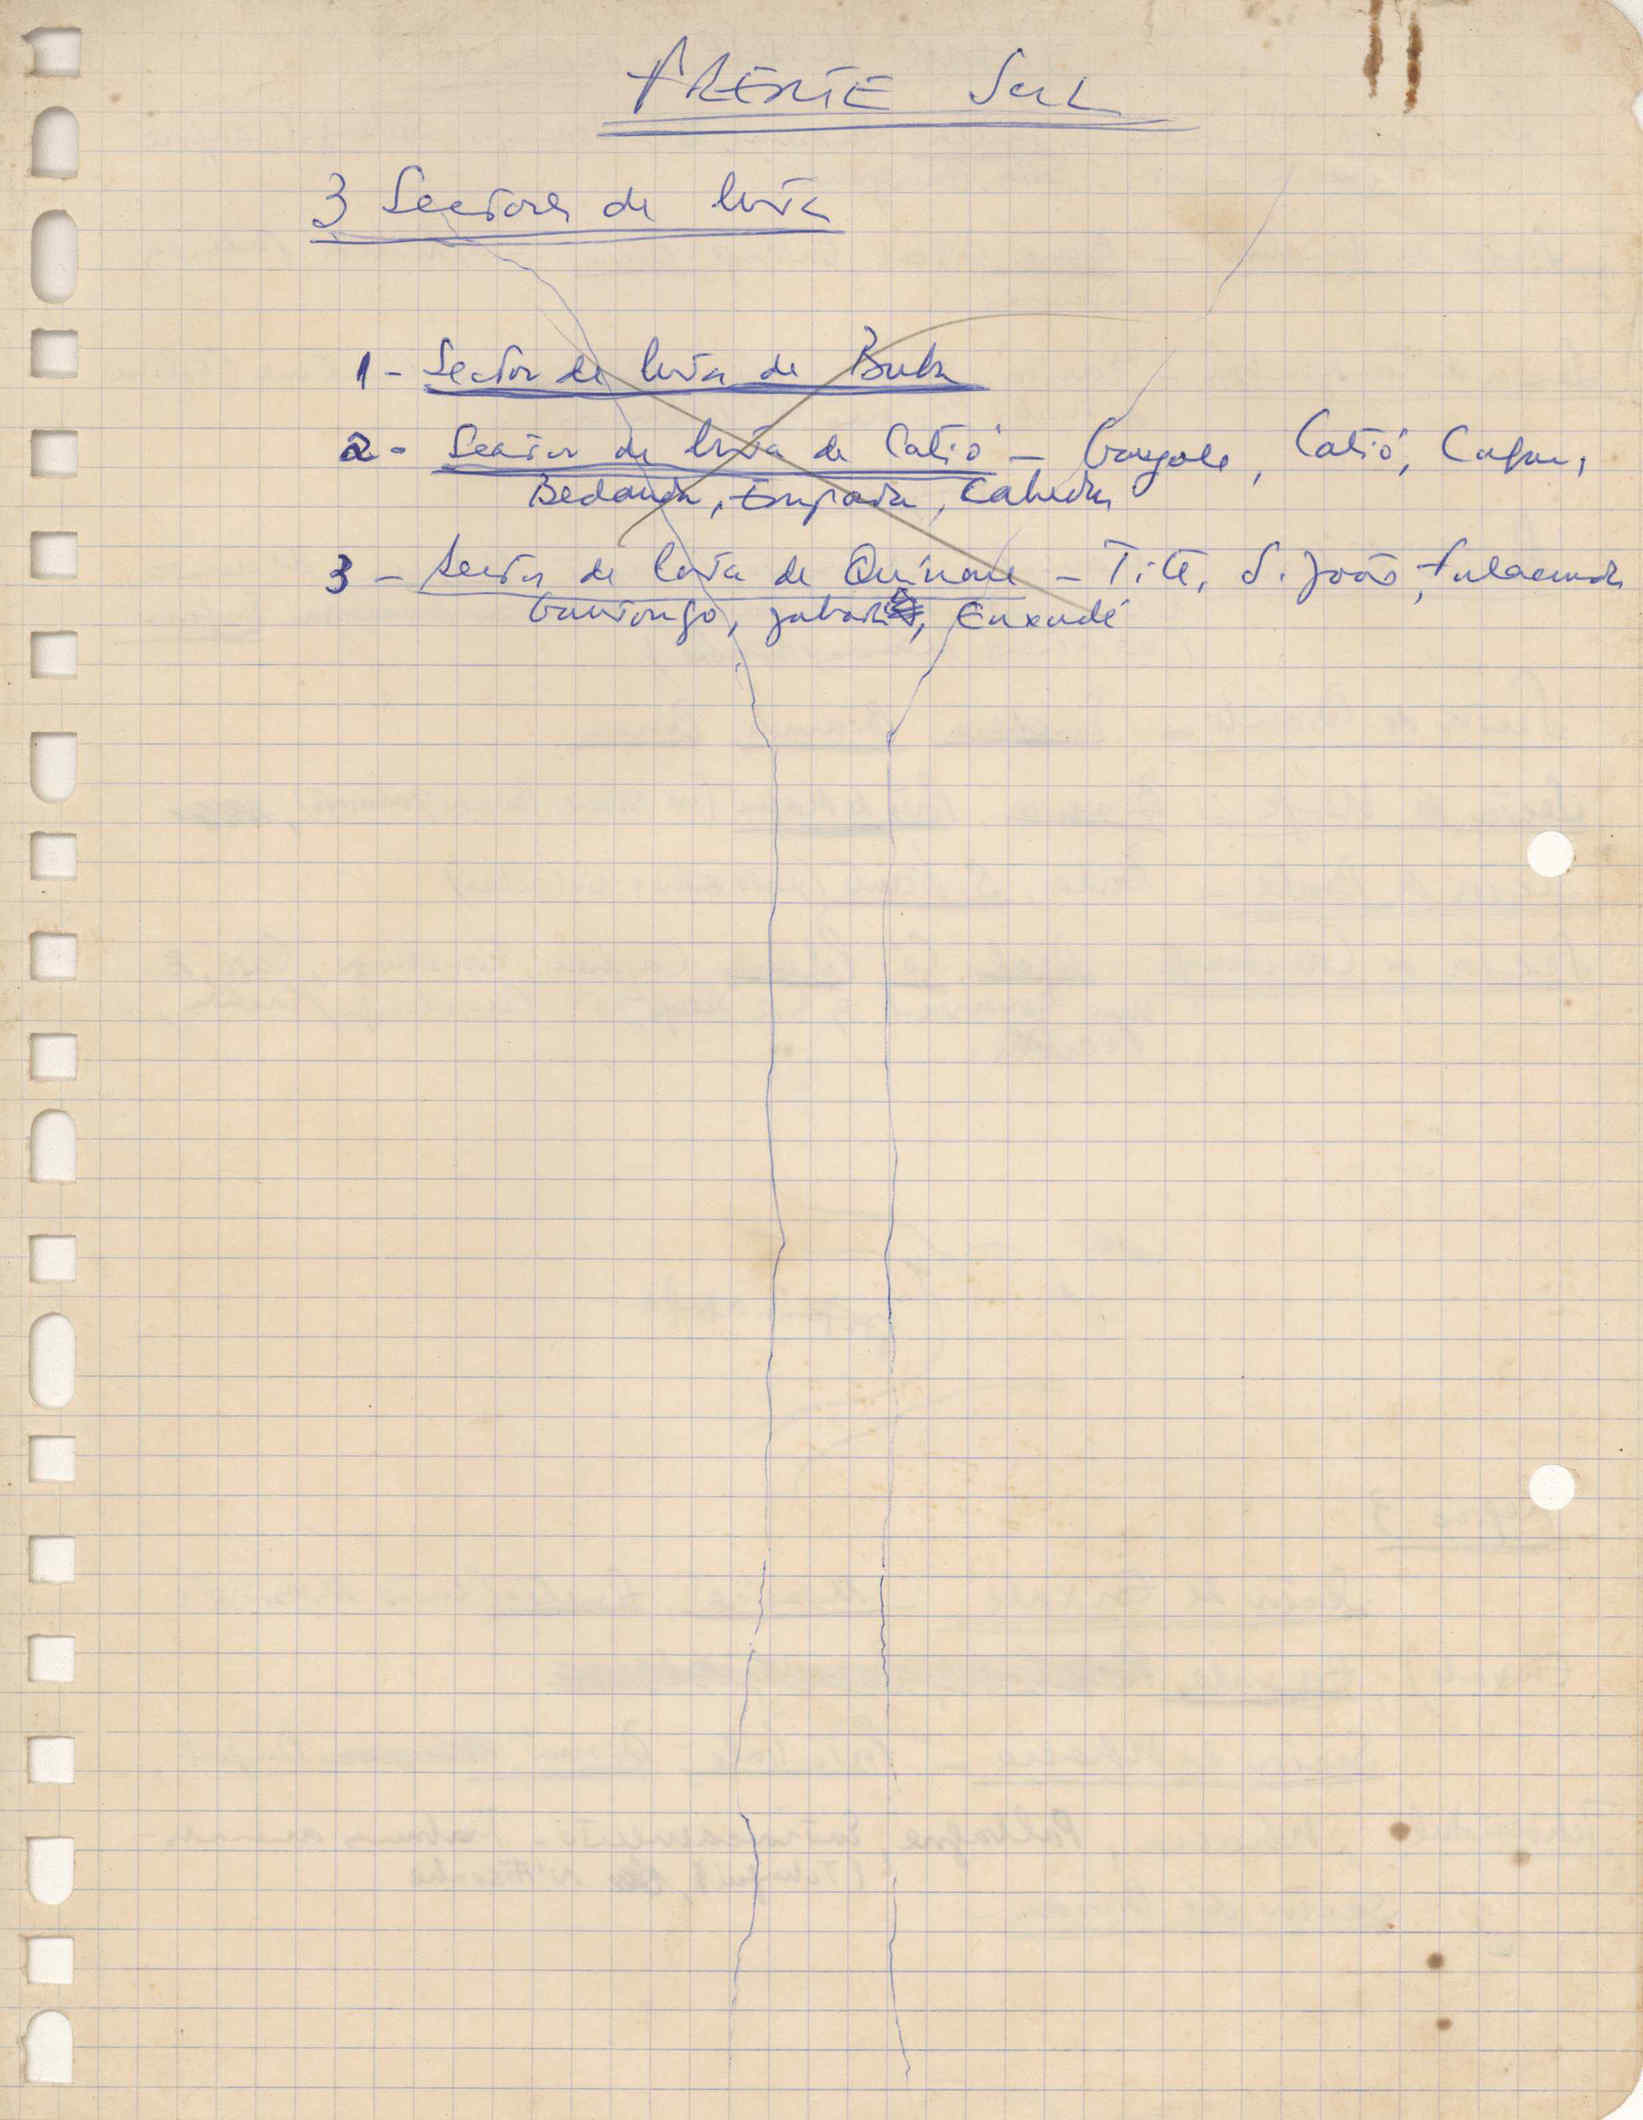 FRENTE SUL
3 Sectores de luta
1 - Sector de luta de Buba
2 - Sector de luta de Catió - Ganjola, Catió, Cufar,
Bedanda, Empada, Cabedu,
3 - Sector de luta de Quinara - Tite, S. João, Fulacunda
Gantongo, Jabadá, Enxudé